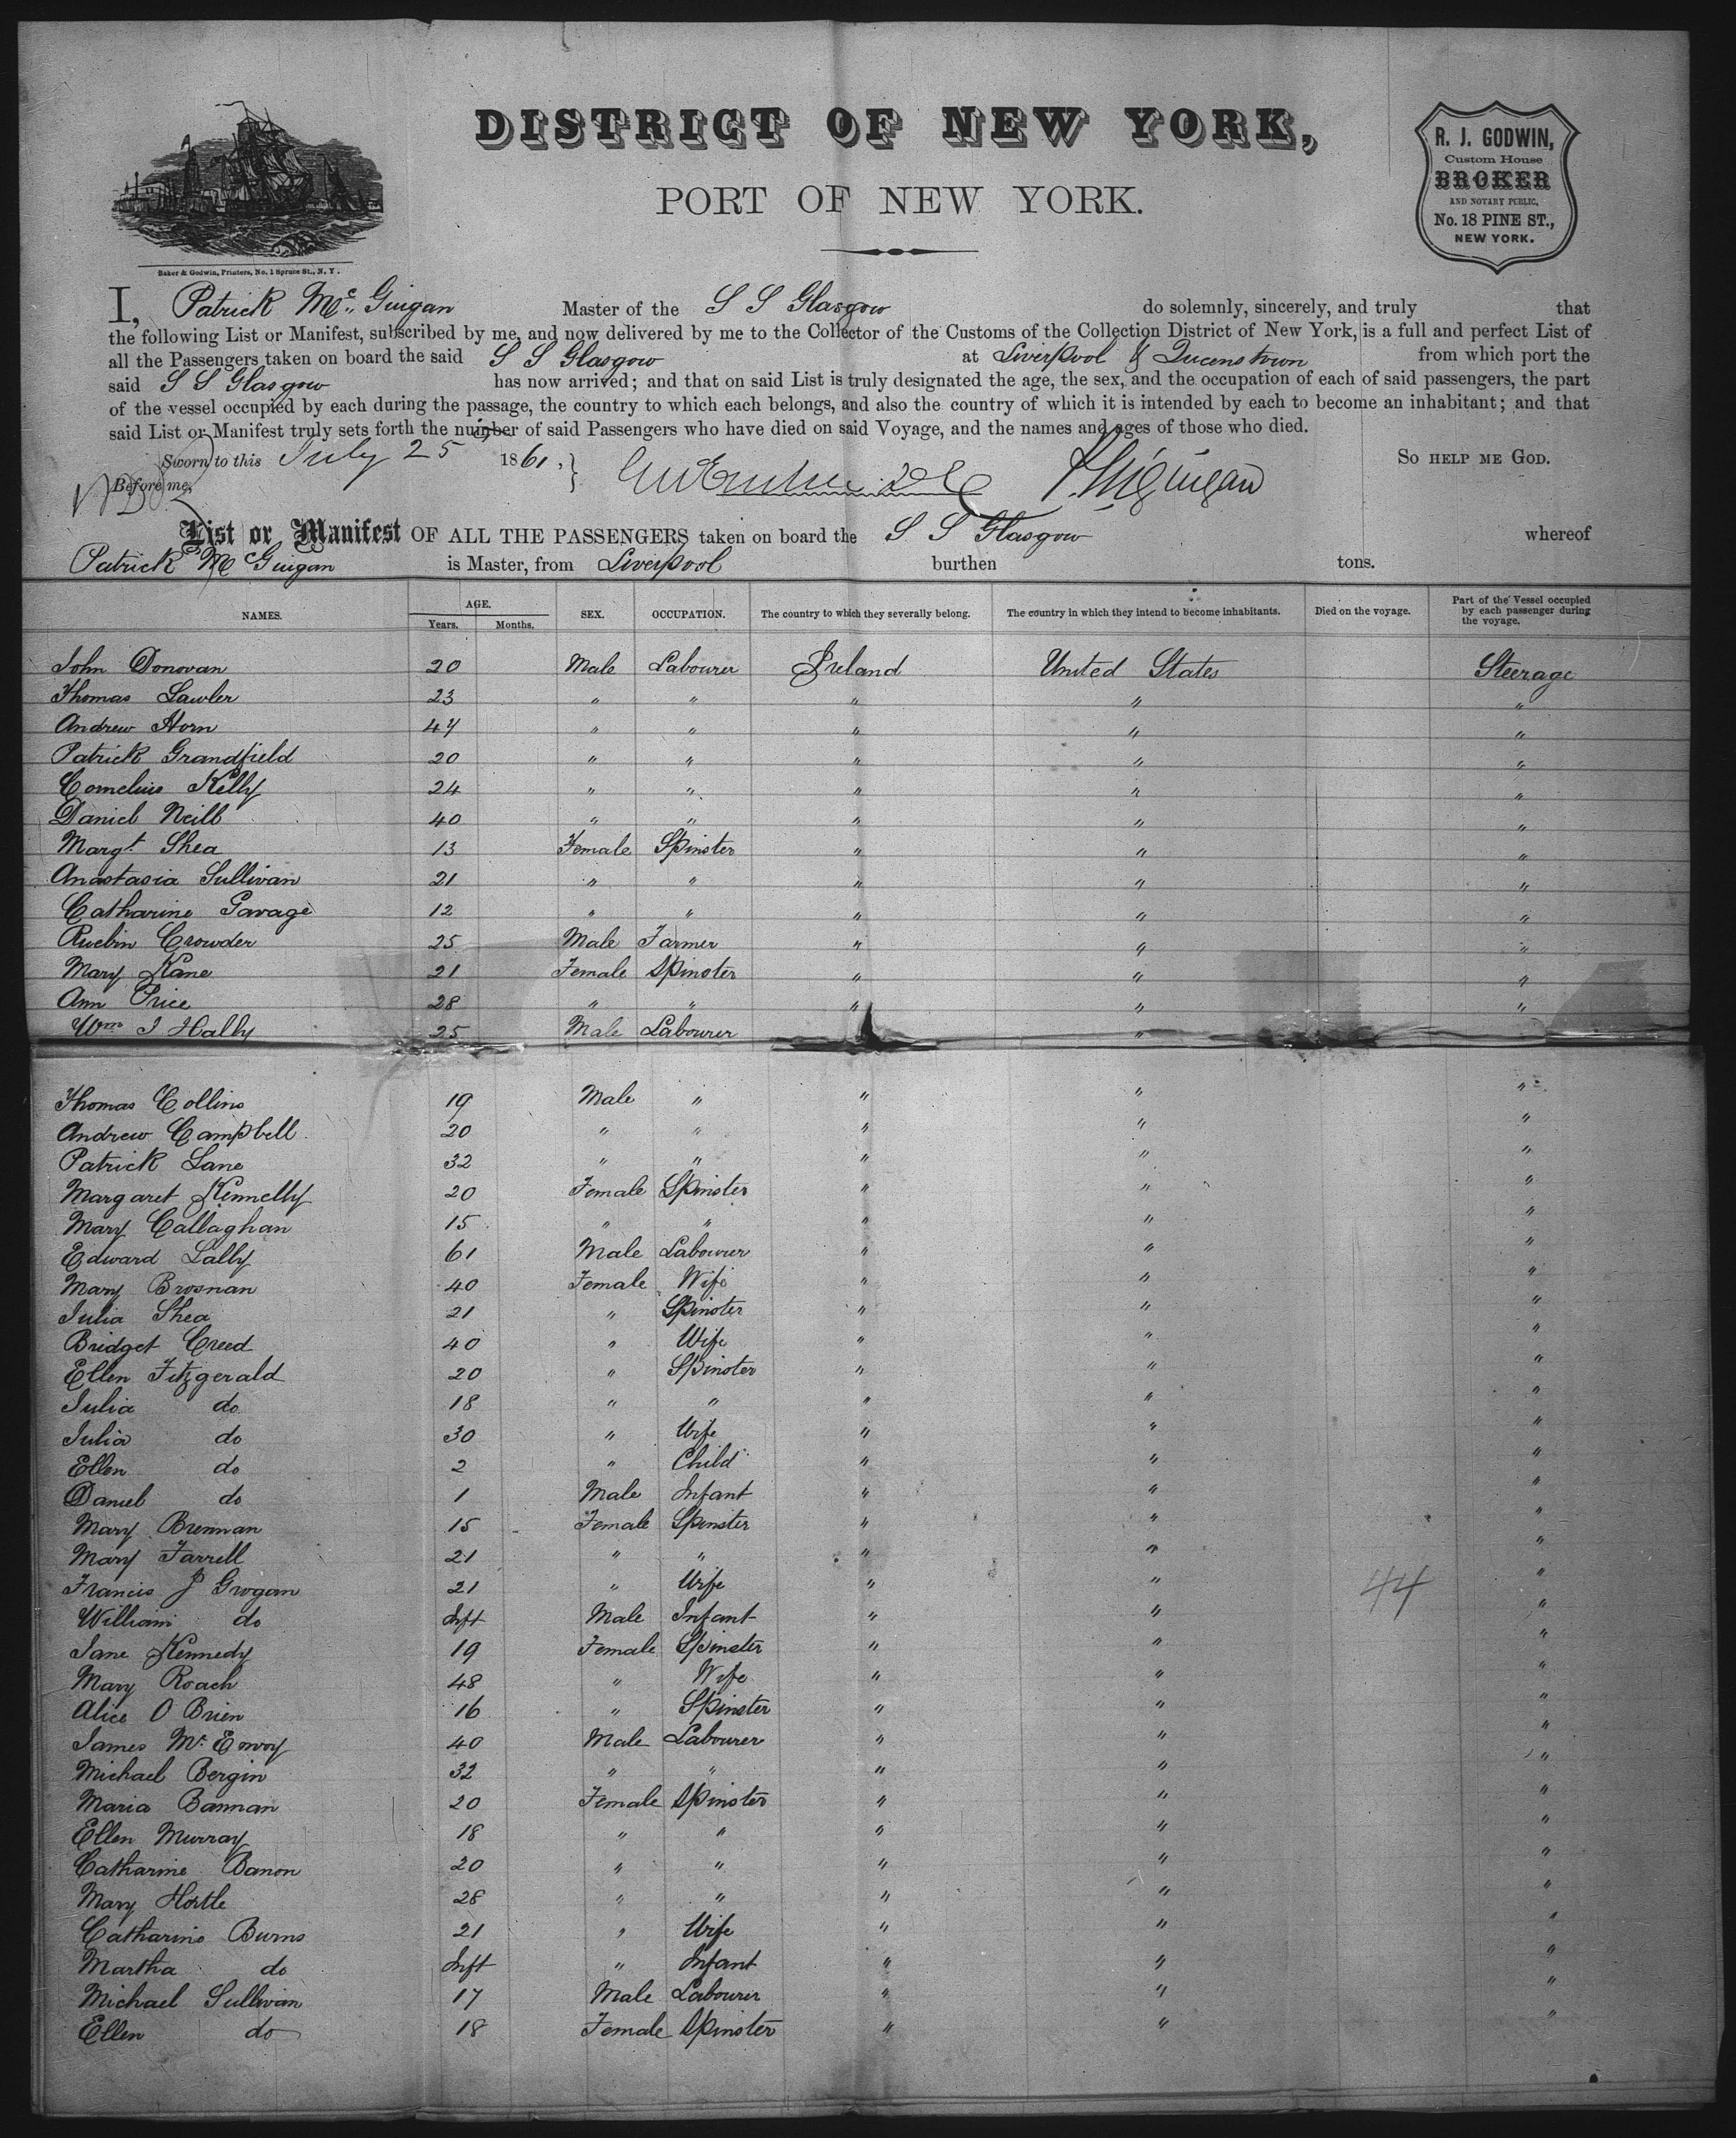 DISTRICT OF NEW YORK,
PORT OF NEW YORK.
R. J. GODWIN,
Custom House
BROKER
AND NOTARY PUBLIC,
No. 18 PINE ST.,
NEW YORK.
Baker & Godwin, Printers, No. 1 Spruce St., N. Y.
I, Patrick Mc Guigan Master of the S S Glasgow do solemnly, sincerely, and truly that
the following List or Manifest, subscribed by me, and now delivered by me to the Collector of the Customs of the Collection District of New York, is a full and perfect List of
all the Passengers taken on board the said S S Glasgow at Liverpool & Queenstown from which port the
said S S Glasgow has now arrived; and that on said List is truly designated the age, the sex, and the occupation of each of said passengers, the part
of the vessel occupied by each during the passage, the country to which each belongs, and also the country of which it is intended by each to become an inhabitant; and that
said List or Manifest truly sets forth the number of said Passengers who have died on said Voyage, and the names and ages of those who died.
Sworn to this July 25 1861, P. McGuigan SO HELP ME GOD.
Before me,
List or Manifest OF ALL THE PASSENGERS taken on board the S S Glasgow whereof
Patrick Mc Guigan is Master, from Liverpool burthen tons.
NAMES. AGE. Years. Months. SEX. OCCUPATION. The country to which they severally belong. The country in which they intend to become inhabitants. Died on the voyage. Part of the Vessel occupied by each passenger during the voyage.
John Donovan 20 Male Labourer Ireland United States Steerage
Thomas Lawler 23 " " " " "
Andrew Horn 47 " " " " "
Patrick Grandfield 20 " " " " "
Cornelius Kelly 24 " " " " "
Daniel Neill 40 " " " " "
Margt. Shea 13 Female Spinster " " "
Anastasia Sullivan 21 " " " " "
Catharine Savage 12 " " " " "
Ruebin Crowder 25 Male Farmer " " "
Mary Kane 21 Female Spinster " " "
Ann Price 28 " " " " "
Wm J Hally 25 Male Labourer "
Thomas Collins 19 Male " " " "
Andrew Campbell 20 " " " " "
Patrick Lane 32 " " " " "
Margaret Kennelly 20 Female Spinster " " "
Mary Callaghan 15 " " " " "
Edward Lally 61 Male Labourer " " "
Mary Brosnan 40 Female Wife " " "
Julia Shea 21 " Spinster " " "
Bridget Creed 40 " Wife " " "
Ellen Fitzgerald 20 " Spinster " " "
Julia do 18 " " " " "
Julia do 30 " Wife " " "
Ellen do 2 " Child " " "
Daniel do 1 Male Infant " " "
Mary Brennan 15 Female Spinster " " "
Mary Farrell 21 " " " " "
Francis J Grogan 21 " Wife " " 44 "
William do Inft Male Infant " " "
Jane Kennedy 19 Female Spinster " " "
Mary Roach 48 " Wife " " "
Alice O Brien 16 " Spinster " " "
James Mc Evoy 40 Male Labourer " " "
Michael Bergin 32 " " " " "
Maria Bannan 20 Female Spinster " " "
Ellen Murray 18 " " " " "
Catharine Banon 20 " " " " "
Mary Hortle 28 " " " " "
Catharine Burns 21 " Wife " " "
Martha do Inft " Infant " " "
Michael Sullivan 17 Male Labourer " " "
Ellen do 18 Female Spinster " " "